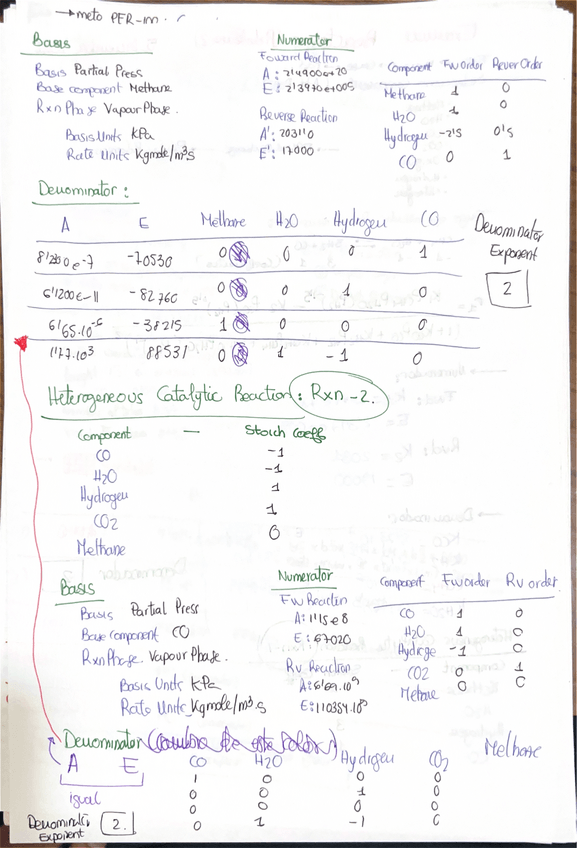 → meto PER-m.
Basis
Basis Partial Press
Base component Methane
Rxn Phase Vapour Phase.
Basis Units KPa
Rate Units Kgmole/m³s
Numerator
Foward Reaction
A: 2'4900e+20
E: 2'3970e+005
Reverse Reaction
A': 203110
E': 17000
Component Fw Order Rever Order
Methane 1 0
H2O 1 0
Hydrogeu -2'5 0'5
CO 0 1
Denominator:
A E Methane H2O Hydrogeu CO
8'2300e-7 -70530 0 0 0 1
6'1200E-11 -82760 0 0 1 0
6'65.10⁻⁶ -38215 1 0 0 0
1'77.10³ 88531 0 1 -1 0
Denominator
Exponent
2
Heterogeneous Catalytic Reaction: Rxn-2.
Component — Stoich Coeff
CO -1
H2O -1
Hydrogeu 1
CO2 1
Methane 0
Basis
Basis Partial Press
Base component CO
Rxn Phase. Vapour Phase.
Basis Units KPa
Rate Units Kgmole/m³.s
Numerator
Fw Reaction
A: 1'15e8
E: 67020
Rv Reaction
A: 6'69.10⁹
E: 110384.10⁰
Component Fw order Rv order
CO 1 0
H2O 1 0
Hydroge -1 0
CO2 0 1
Metane 0 0
Denominator
A E CO H2O Hydrogeu CO2 Melhare
igual
1 0 0 0
0 0 1 0
0 0 0 0
0 1 -1 0
Denominator
Exponent 2.